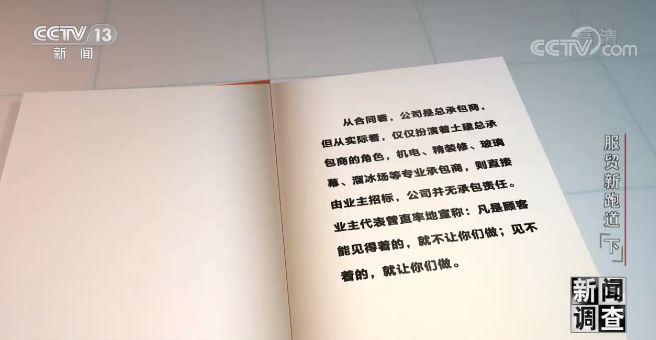 CCTV 13
新闻
高清
CCTV.com
从合同看，公司是总承包商，
但从实际看，仅仅扮演着土建总承
包商的角色，机电、精装修、玻璃
幕、溜冰场等专业承包商，则直接
由业主招标，公司并无承包责任。
业主代表曾直率地宣称：凡是顾客
能见得着的，就不让你们做；见不
着的，就让你们做。
服贸新跑道「下」
新闻
调查